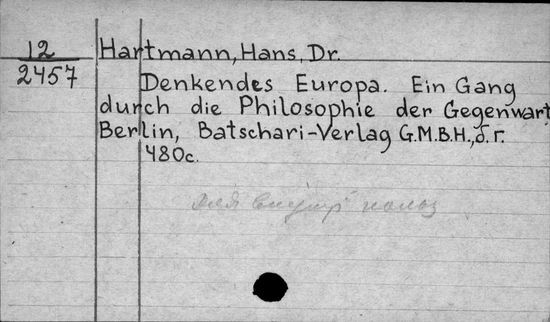 12
2457
Hartmann, Hans, Dr.
Denkendes Europa. Ein Gang
durch die Philosophie der Gegenwart
Berlin, Batschari-Verlag G.M.B.H., s. г.
480c.
для внутр польз